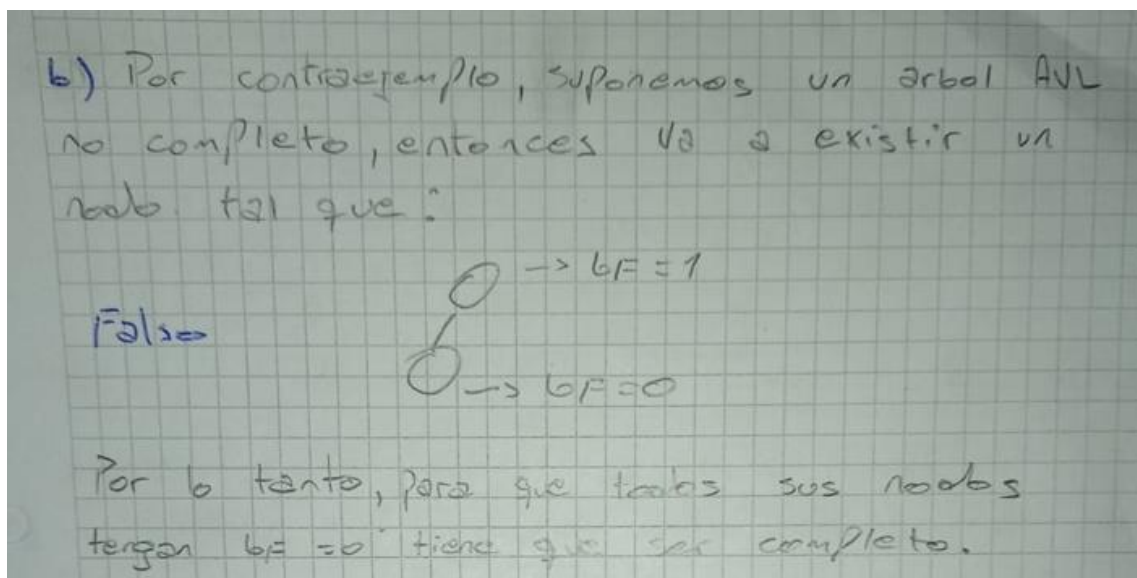 b) Por contraejemplo, suponemos un arbol AVL
no completo, entonces va a existir un
nodo tal que:
-> bF = 1
Falso
-> bF = 0
Por lo tanto, para que todos sus nodos
tengan bF = 0 tiene que ser completo.